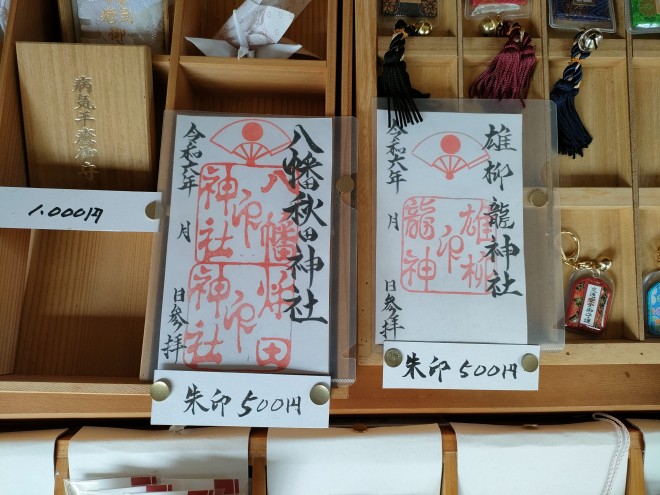 病気平癒御守
1.000円
八幡秋田神社
八幡秋田
神社
神社
印
印
令和六年
月
日参拝
朱印 500円
雄柳龍神社
雄柳
印
龍神
令和六年
月
日参拝
朱印 500円